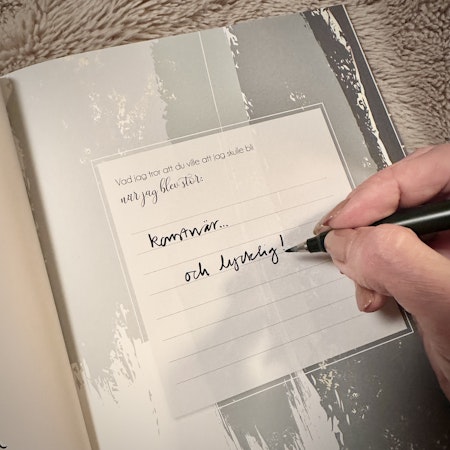 Vad jag tror att du ville att jag skulle bli
när jag blev stor:
konstnär...
och lycklig!